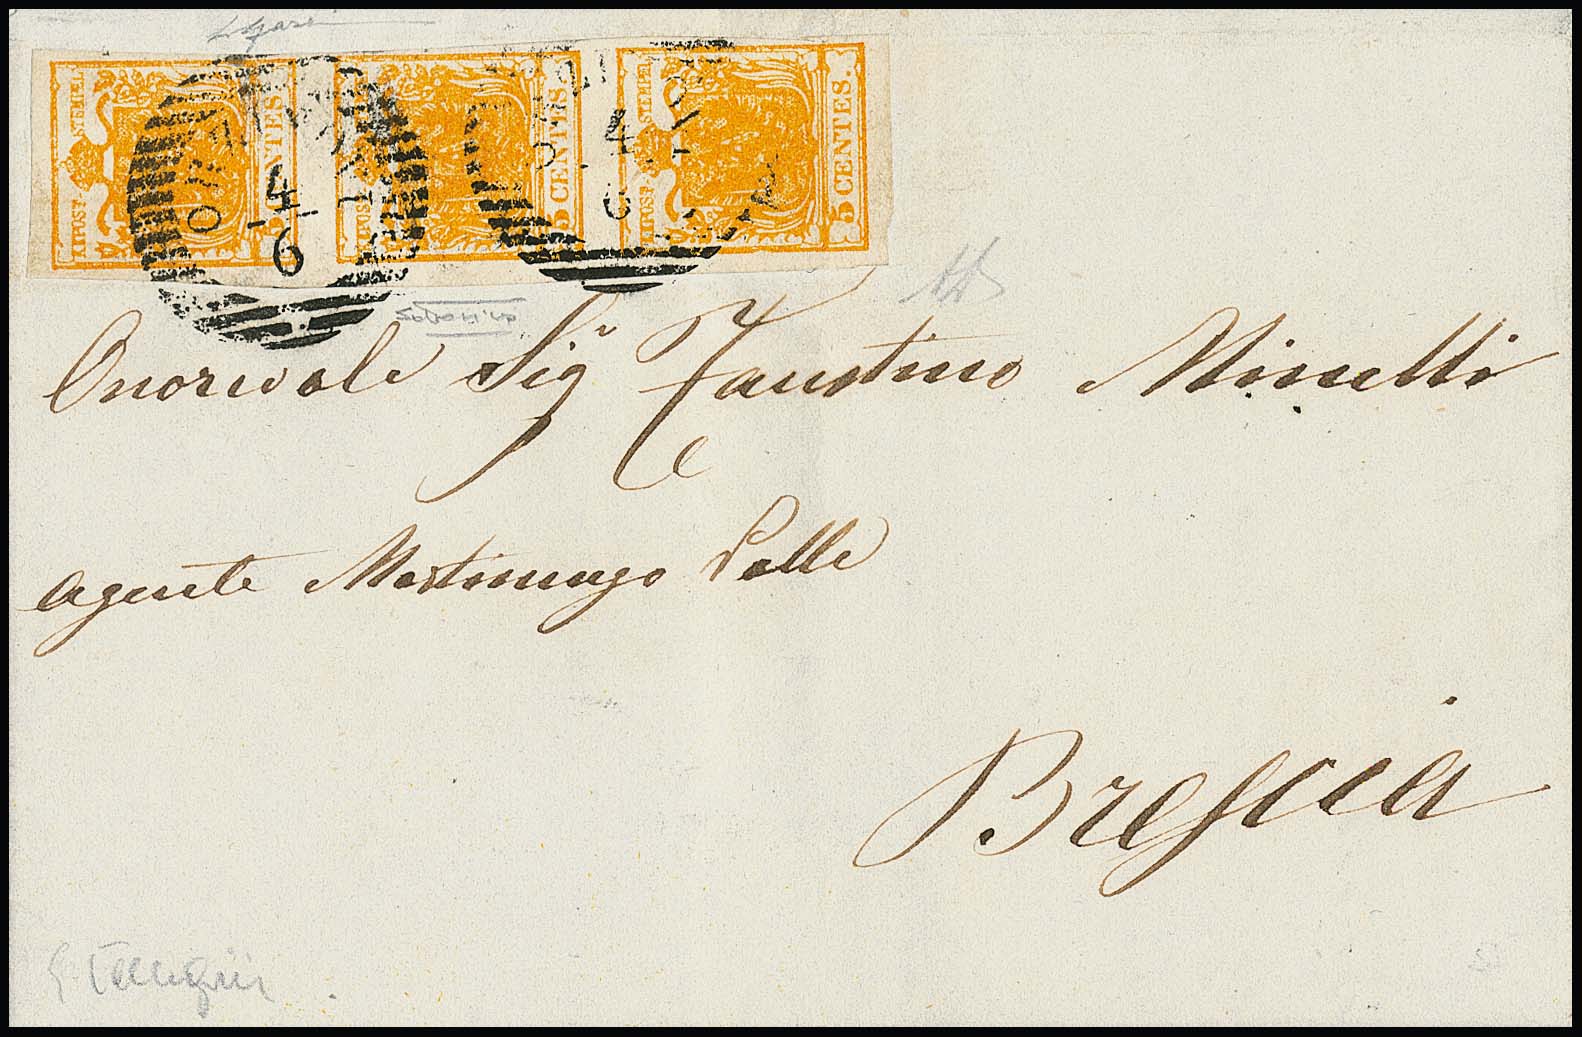 KK POST-STEMPEL
5 CENTES.
KK POST-STEMPEL
5 CENTES.
KK POST-STEMPEL
5 CENTES.
ORZINUOVI
4
6
ORZINUOVI
4
6
Onorevole Sig.r Faustino Minelli
Agente Martinengo Palle
Brescia